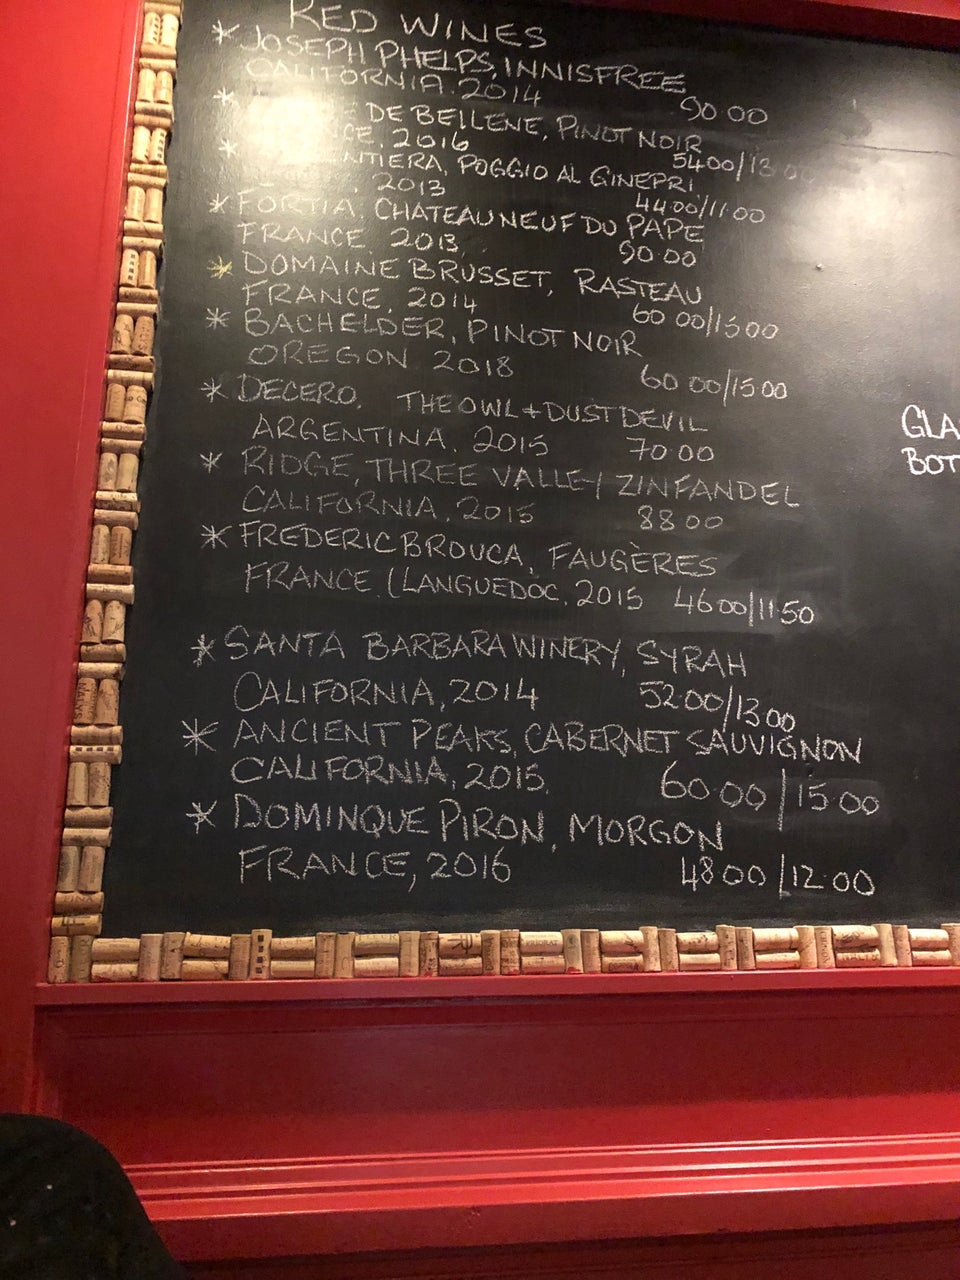 RED WINES
* JOSEPH PHELPS, INNISFREE
CALIFORNIA. 2014 90.00
* DE BELLENE, PINOT NOIR
2016 54.00/13.00
* POGGIO AL GINEPRI
2013 44.00/11.00
* FORTIA, CHATEAUNEUF DU PAPE
FRANCE 2013, 90.00
* DOMAINE BRUSSET, RASTEAU
FRANCE, 2014 60.00/15.00
* BACHELDER, PINOT NOIR
OREGON 2018 60.00/15.00
* DECERO, THE OWL + DUST DEVIL
ARGENTINA, 2015 70.00
* RIDGE, THREE VALLEY ZINFANDEL
CALIFORNIA, 2015 88.00
* FREDERIC BROUCA, FAUGÈRES
FRANCE (LANGUEDOC, 2015 46.00/11.50
* SANTA BARBARA WINERY, SYRAH
CALIFORNIA, 2014 52.00/13.00
* ANCIENT PEAKS, CABERNET SAUVIGNON
CALIFORNIA, 2015, 60.00/15.00
* DOMINQUE PIRON, MORGON
FRANCE, 2016 48.00/12.00
GLA
BOT